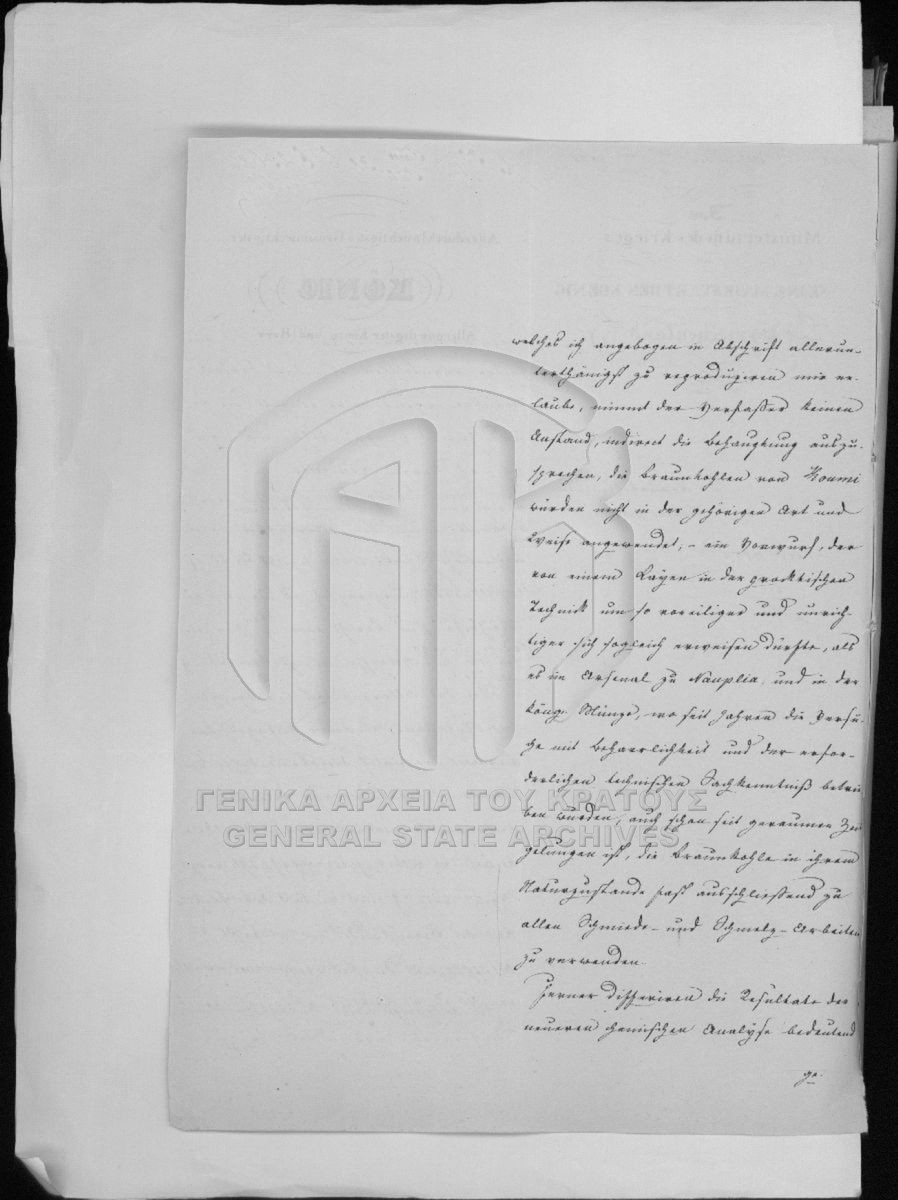 welches ich angebogen in Abschrift allerun-
terthänigst zu reproduziren mir er-
laube, nimmt der Verfaßer keinen
Anstand, indirect die Behauptung auszu-
sprechen, die Braunkohlen von Koumi
würden nicht in der gehörigen Art und
Weise angewendet; – ein Vorwurf, der
von einem Layen in der pracktischen
Technick um so voreiliger und unrich-
tiger sich sogleich erweisen dürfte, als
es im Arsenal zu Nauplia, und in der
königl. Münze, wo seit Jahren die Versu-
che mit Beharrlichkeit und der erfor-
derlichen technischen Sachkenntniß betrie
ben wurden, auch schon seit geraumer Zeit
gelungen ist, die Braunkohle in ihrem
Naturzustande fast ausschließend zu
allen Schmiede- und Schmelz-Arbeiten
zu verwenden.
Ferner differiren die Resultate der
neueren chemischen Analyse bedeutend
ΓΕΝΙΚΑ ΑΡΧΕΙΑ ΤΟΥ ΚΡΑΤΟΥΣ
GENERAL STATE ARCHIVES